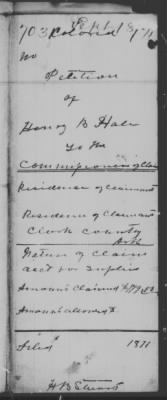 No
Petition
of
Henry B Hale
To the
Commissioners of Claims
Residence of claimant
Residence of Claimant
Clark County
Ark
Nature of Claim
act for supplies
Amount Claimed
Amount allowed $
Filed 1871
H B Stuart